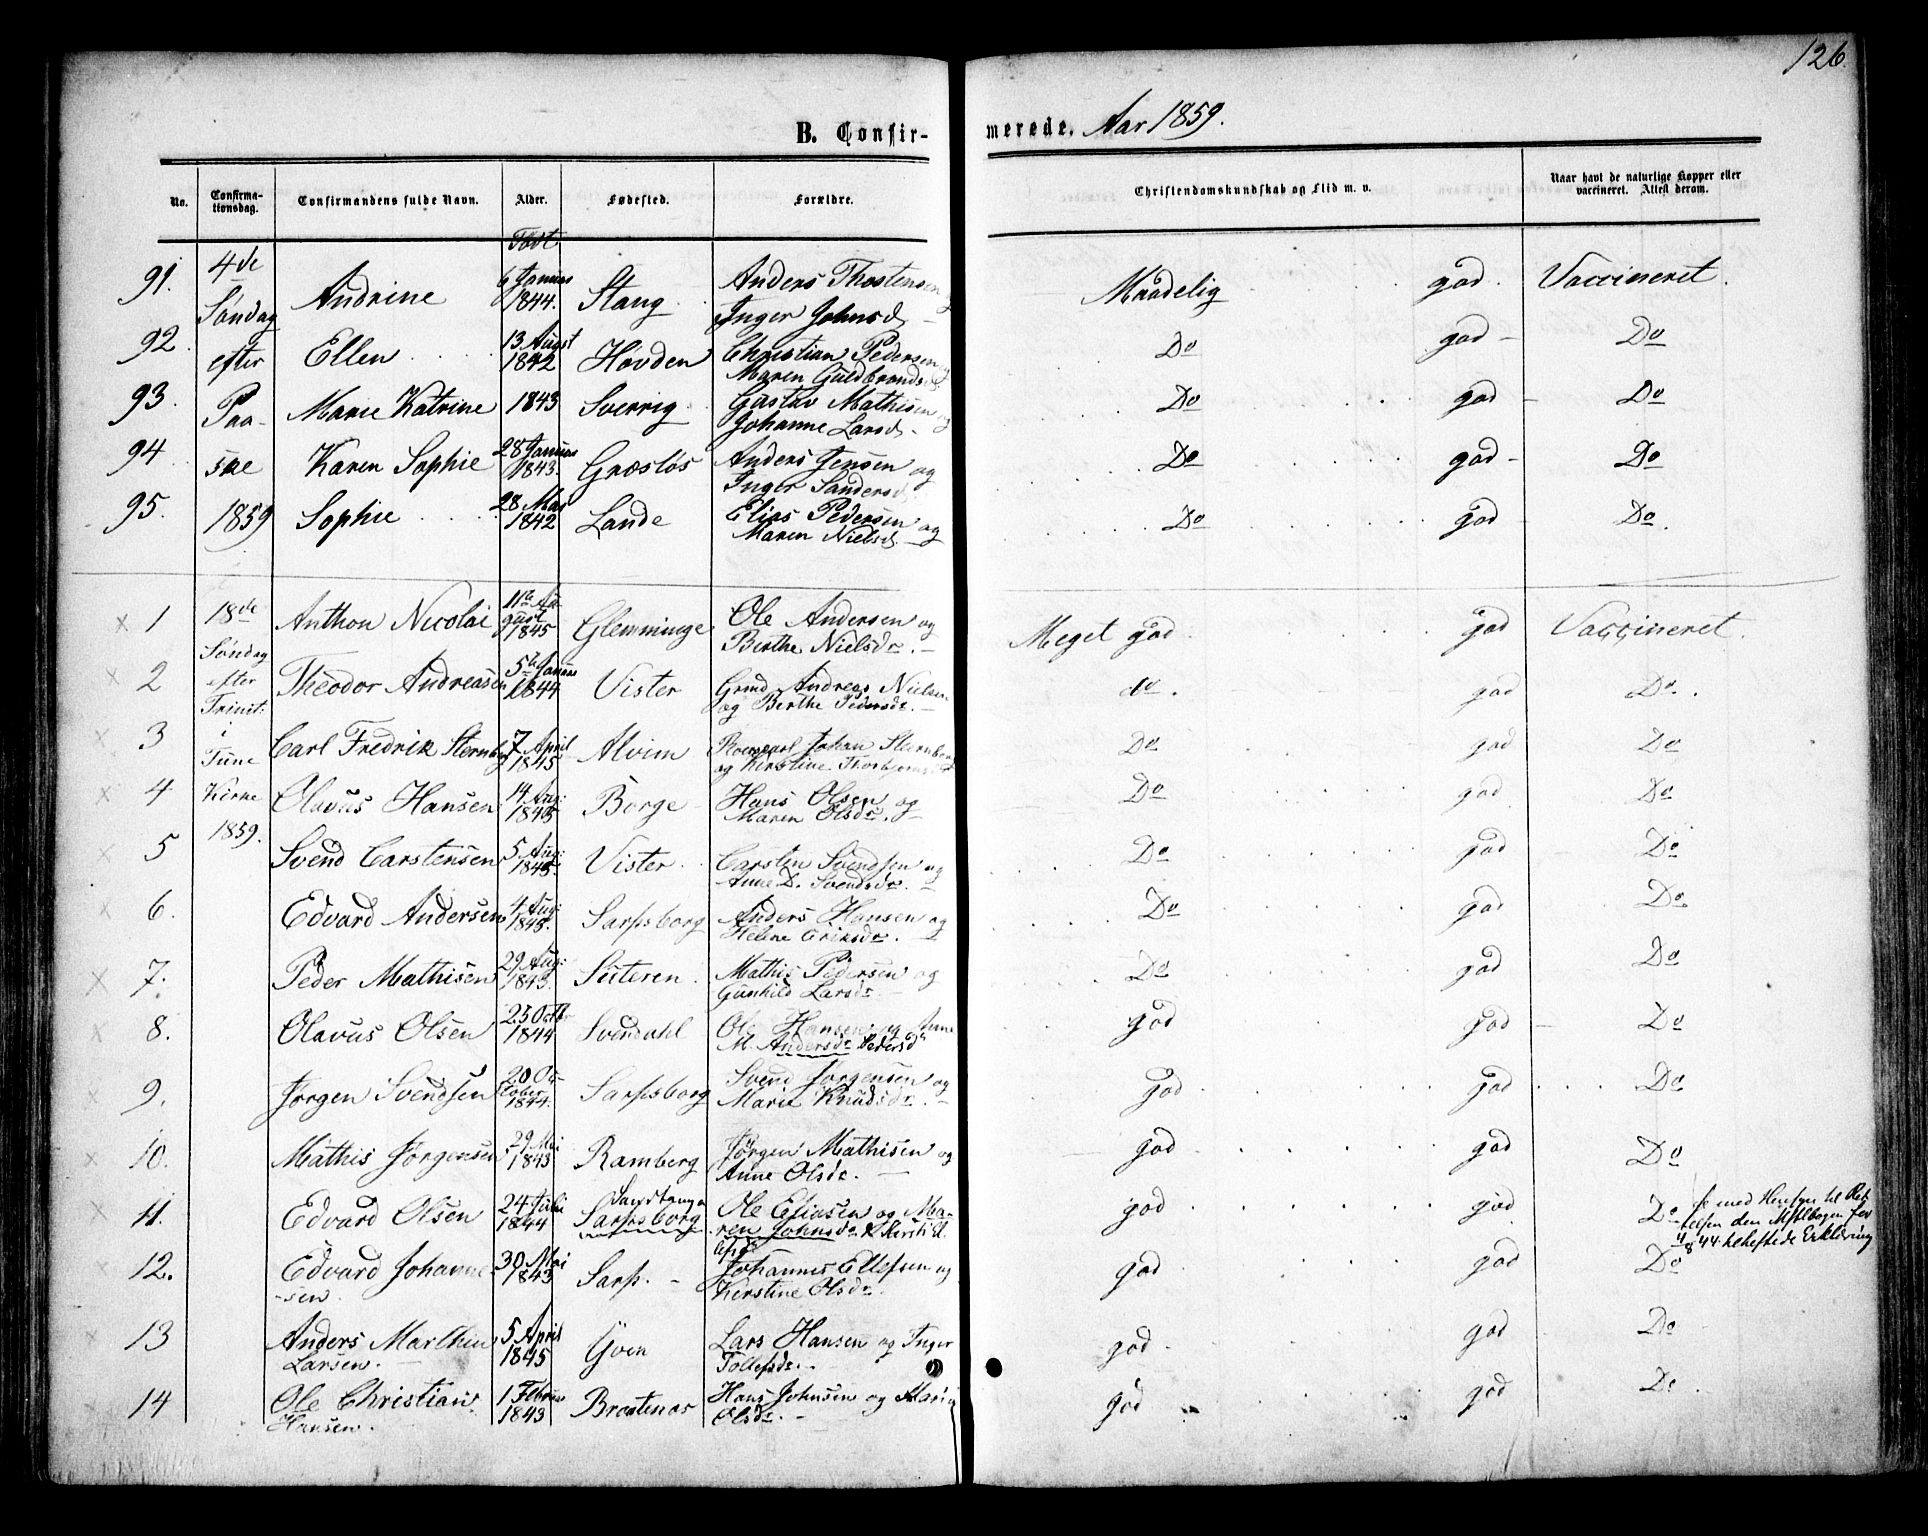 126.
B. Confir-
merede. Aar 1859.
No. Confirma-tionsdag. Confirmandens fulde Navn. Alder. Fødested. Forældre. Christendomskundskab og Flid m. v. Naar havt de naturlige Kopper eller vaccineret. Attest derom.
Født
4de Søndag efter Paa-ske 1859
91. Andrine 6 Januar 1844. Stang Anders Thostensen Inger Johnsd. Maadelig god. Vaccineret.
92. Ellen 13 August 1842 Hovden Christian Pedersen og Maren Guldbrandsd. Do god Do
93. Marie Katrine 1843 Sverrig Gustav Mathisen og Johanne Larsd. Do god Do
94 Karen Sophie 28 Januar 1843. Græslös Anders Jensen og Inger Sandersd. Do god Do
95. Sophie 28 Mai 1842 Lande Elias Pedersen og Maren Nielsd. Do god Do.
18de Søndag efter Trinit: i Tune Kirke 1859.
1 Anthon Nicolai 11te August 1845 Glemminge Ole Andersen og Berthe Nielsdr. Meget god god Vaccineret.
2 Theodor Andreasen 5te Januar 1844 Vister Grmd Andreas Nielsen og Berthe Pedersdr. do. god Do.
3 Carl Fredrik Sternberg 7 April 1845 Alvim Johan Sternberg og Kirstine Thorbjørnsd. Do god Do
4 Olavus Hansen 14 Aug: 1845 Borge Hans Olsen og Maren Olsdr. Do god Do
5 Svend Carstensen 5 Aug: 1845. Vister Carsten Svendsen og Anne D. Svendsdr. Do god Do
6. Edvard Andersen 4 Aug: 1845. Sarpsborg Anders Hansen og Helene Eriksdr. Do god Do
7. Peder Mathisen 29 Aug: 1843. Mathis Pedersen og Gunhild Larsdr. Do god Do
8. Olavus Olsen 23 Octbr 1844 Svendahl Ole Hansen og Anne M. Andersdr. Pedersdr god god Do
9. Jørgen Svendsen 20 October 1844. Sarpsborg Svend Jørgensen og Marie Knudsdr. god god Do
10. Mathis Jørgensen 29 Mai 1843 Ramberg Jørgen Mathisen og Anne Olsdr. god god Do
11. Edvard Olsen 24 Juli 1844 Sandtangen Sarpsborg Ole Eliasen og Maren Johnsdr. god god Do med Hensyn til den heftede Erklæring
12. Edvard Johannesen. 30 Mai 1843 Sarp. Johannes Ellefsen og Kirstine Olsdr. god god Do
13 Anders Marthin Larsen. 5 April 1845 Yven Lars Hansen og Inger Tollefsdr. god god Do
14 Ole Christian Hansen. 1 Februar 1843 Bratenas Hans Johnsen og Maria Olsdr. god god Do